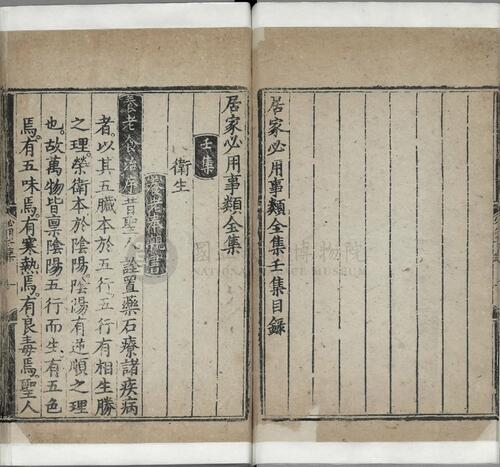 居家必用事類全集壬集目錄
居家必用事類全集
壬集
衛生
養老奉親書
養老食治序 昔聖人詮置藥石療諸疾病
者以其五臟本於五行五行有相生勝
之理榮衛本於陰陽陰陽有逆順之理
也故萬物皆禀陰陽五行而生有五色
焉有五味焉有寒熱焉有良毒焉聖人
NATIONAL PALACE MUSEUM